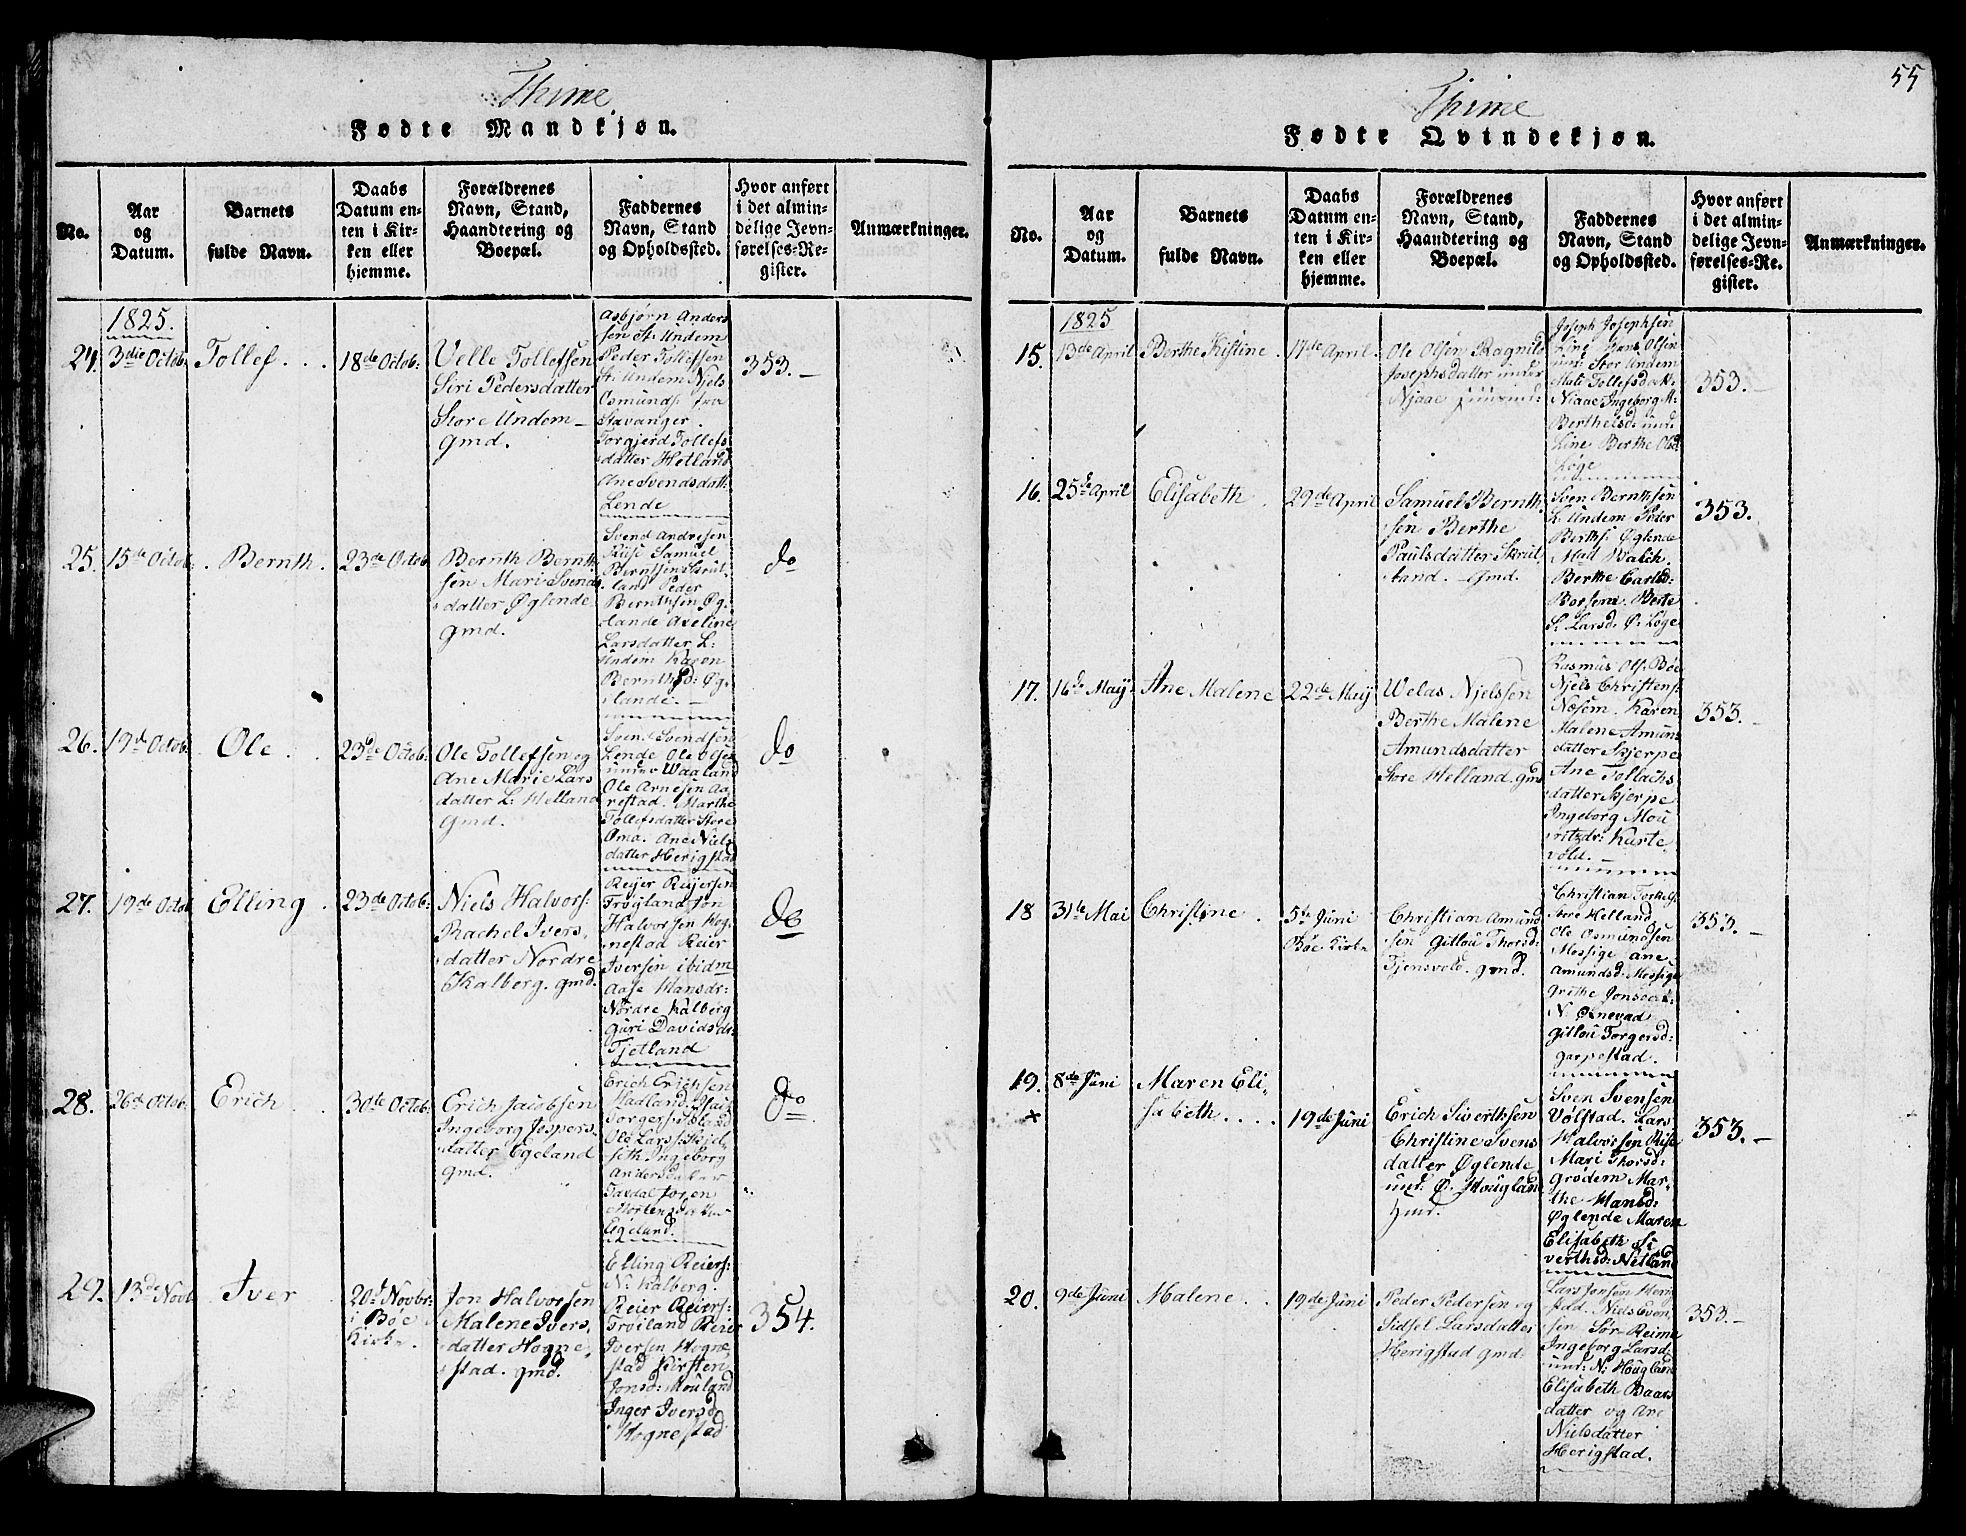 Thime
Fødte Mandkjøn.
No.
Aar
og
Datum.
Barnets
fulde Navn.
Daabs
Datum en-
ten i Kir-
ken eller
hjemme.
Forældrenes
Navn, Stand,
Haandtering og
Boepæl.
Faddernes
Navn, Stand
og Opholdssted.
Hvor anført
i det almin-
delige Jevn-
førelses-Re-
gister.
Anmærkninger.
1825.
24.
3die Octob:
Tollef
18de Octob:
Velle Tollefsen
Siri Pedersdatter
Store Undem
Gmd.
Asbjørn Anders
sen St: Undem
Peder Tollefsen
St: Undem Njels
Osmunds: fra
Stavanger.
Torgjerd Tollefs
datter Hetland
Ane Svendsdatt:
Lende
353.
25.
15de Octob:
Bernth.
23de Octob
Bernth Bernth
sen Mari Svends
datter Øglende
Gmd.
Svend Andresen
Riise Samuel
Berntsen Skrut
land Peder
Bernthsen Øg-
lande Axeline
Larsdatter L:
Undem Karen
Bernthsd: Øg-
lande.
do
26.
19de Octob:
Ole
23de Octob:
Ole Tollefsen og
Ane Marie Lars
datter L: Helland
Gmd.
Svend Svendsen
Lende Ole Olsen
under Waaland
Ole Arnesen Aa
restad. Marthe
Tollefsdatter Store
Oma. Ane Niels
datter Herigstad
do
27.
19de Octob
Elling
23de Octob:
Niels Halvors:
Rachel Ivers
datter Nordre
Kalberg. gmd.
Reijer Reijersen
Frøyland Jon
Halvorsen Hog
nestad Reier
Iversen ibidm
Aase Hansdr:
Nordre Kalberg
Guri Davidsdr:
Tjetland
do
28.
26de Octob:
Erich
30te Octob:
Erich Jacobsen
Ingeborg Jespers
datter Egeland
gmd.
Erich Erichsen
Hadland
Ole Larss:
seth Ingeborg
Andersdatter
Mortensdatter
Egeland.
do
29.
13de Novb
Iver
20de Novbr:
i Bøe
Kirke.
Jon Halvorsen
Malene Ivers
datter Hogne
stad. gmd.
Elling Reiers:
N: Kalberg.
Reier Reiers:
Frøiland Reier
Iversen Hogne
stad Kirsten
Jonsd: Mouland
Inger Iversd
Hognestad
354.
55
Thime
Fødte Qvindekjøn.
No.
Aar
og
Datum.
Barnets
fulde Navn.
Daabs
Datum en-
ten i Kir-
ken eller
hjemme.
Forældrenes
Navn, Stand,
Haandtering og
Boepæl.
Faddernes
Navn, Stand
og Opholdssted.
Hvor anført
i det almin-
delige Jevn-
førelses-Re-
gister.
Anmærkninger.
1825
15.
13de April
Berthe Kistine.
17de April.
Ole Olsen Ragnild
Josephsdatter under
Njaae
Joseph Josephsen
Line Hans Olsen
und: Stor Undem
Mati Tollefsdatt:
Niaae Ingeborg M:
Berthelsd: und:
Line Berthe Olsd
Løge
353.
16.
25de April
Elisabeth
29de April
Samuel Bernth
sen Berthe
Paulsdatter Skrut
land. Gmd.
Sven Bernthsen
L: Undem Peder
Berths: Øglende
Mad Balch.
Berthe Carlsd:
Berte
S: Larsd: Ø: Løge
353.
17.
16de Maij.
Ane Malene
22de Maij
Welas Njelssen
Berthe Malene
Amundsdatter
Store Helland. gmd
Rasmus Ols: Bøe
Njels Christens:
Næsem. Karen
Malene Amuns
datter Skjerpe
Ane Tollachs
datter Skjerpe
Ingeborg Mou
ritzdr: Kurte
vold.
353.
18
31te Mai
Christine.
5te Juni
Bøe Kirke
Christian Amund
sen Gitlou Thorsd:
Tjensvold. gmd.
Christian Torkels:
Store Helland,
Ole Osmundsen
Messige Ane
Amundsd: Messige
Grithe Jonsdat:
N. Øxnevad
Gitlou Torgersd:
Garpestad.
353.
19.
+
8de Juni
Maren Eli-
sabeth
19de Juni
Erich Siverthsen
Christine Svens
datter Øglende
und: Ø. Houglan
hmd.
Sven Svensen
Volstad. Lars
Halvorsen Riise
Mari Thorsd:
Grødem Mar-
the Hansd:
Øglende Maren
Elisabeth Si
verthsd: Netland
353.
20.
9de Juni
Malene
19de Juni
Peder Pedersen og
Sidsel Larsdatter
Herigstad gmd.
Lars Jonsen Herig
stad. Niels Even
sen Sør-Reime
Ingeborg Larsd:
und: N: Hougland
Elisabeth Baars
datter og Ane
Nielsdatter
Herigstad.
353.